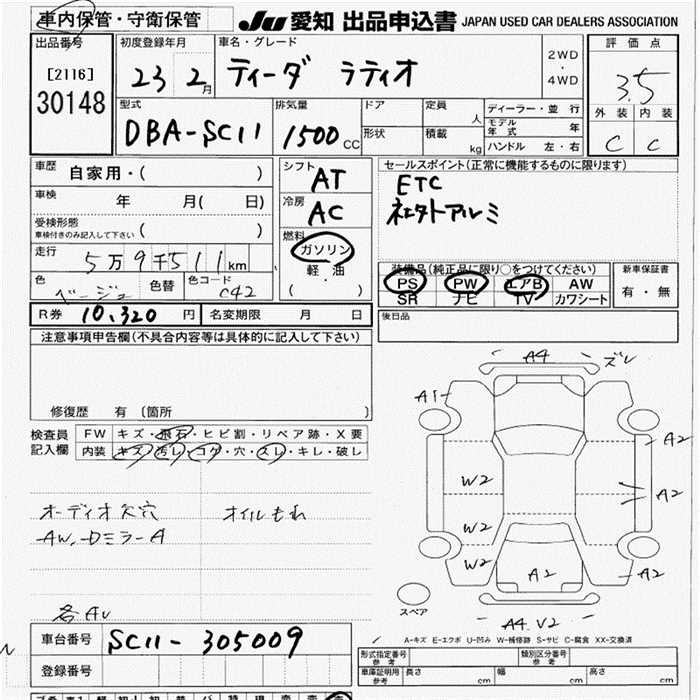 車内保管・守衛保管
JU 愛知 出品申込書 JAPAN USED CAR DEALERS ASSOCIATION
出品番号
[2116]
30148
初度登録年月
23 2月
車名・グレード
ティーダ ラティオ
2WD
・
4WD
評価点
3.5
外装 内装
C C
型式
DBA-SC11
排気量
1500cc
ドア
形状
定員 人
積載 kg
ディーラー・並行
モデル年式 年
ハンドル 左・右
車歴 自家用・( )
車検 年 月( 日)
受検形態
車検付きのみ記入して下さい ( )
走行 5万9千511km
色 ベージュ 色替 色コード C42
シフト AT
冷房 AC
燃料
ガソリン
軽・油
( ・ )
セールスポイント(正常に機能するものに限ります)
ETC
社外アルミ
装備品(純正品に限り○をつけてください)
PS PW エアB AW
SR ナビ TV カワシート
新車保証書
有・無
R券 10,320円 名変期限 月 日
後日品
注意事項申告欄(不具合内容等は具体的に記入して下さい)
修復歴 有 〔箇所 〕
検査員記入欄
FW キズ・飛石・ヒビ割・リペア跡・X要
内装 キズ・汚レ・コゲ・穴・スレ・キレ・破レ
オーディオ欠穴 オイルもれ
AW、DミラーA
各AU
A4 ズレ
A1
A2
W2
A2
W2
W2
A2
A2
スペア
A4.V2
A-キズ E-エクボ U-凹み W-補修跡 S-サビ C-腐食 XX-交換済
車台番号 SC11-305009
登録番号
形式指定番号 参考
類別区分番号 参考
車庫証明用 参考 長さ cm 幅 cm 高さ cm